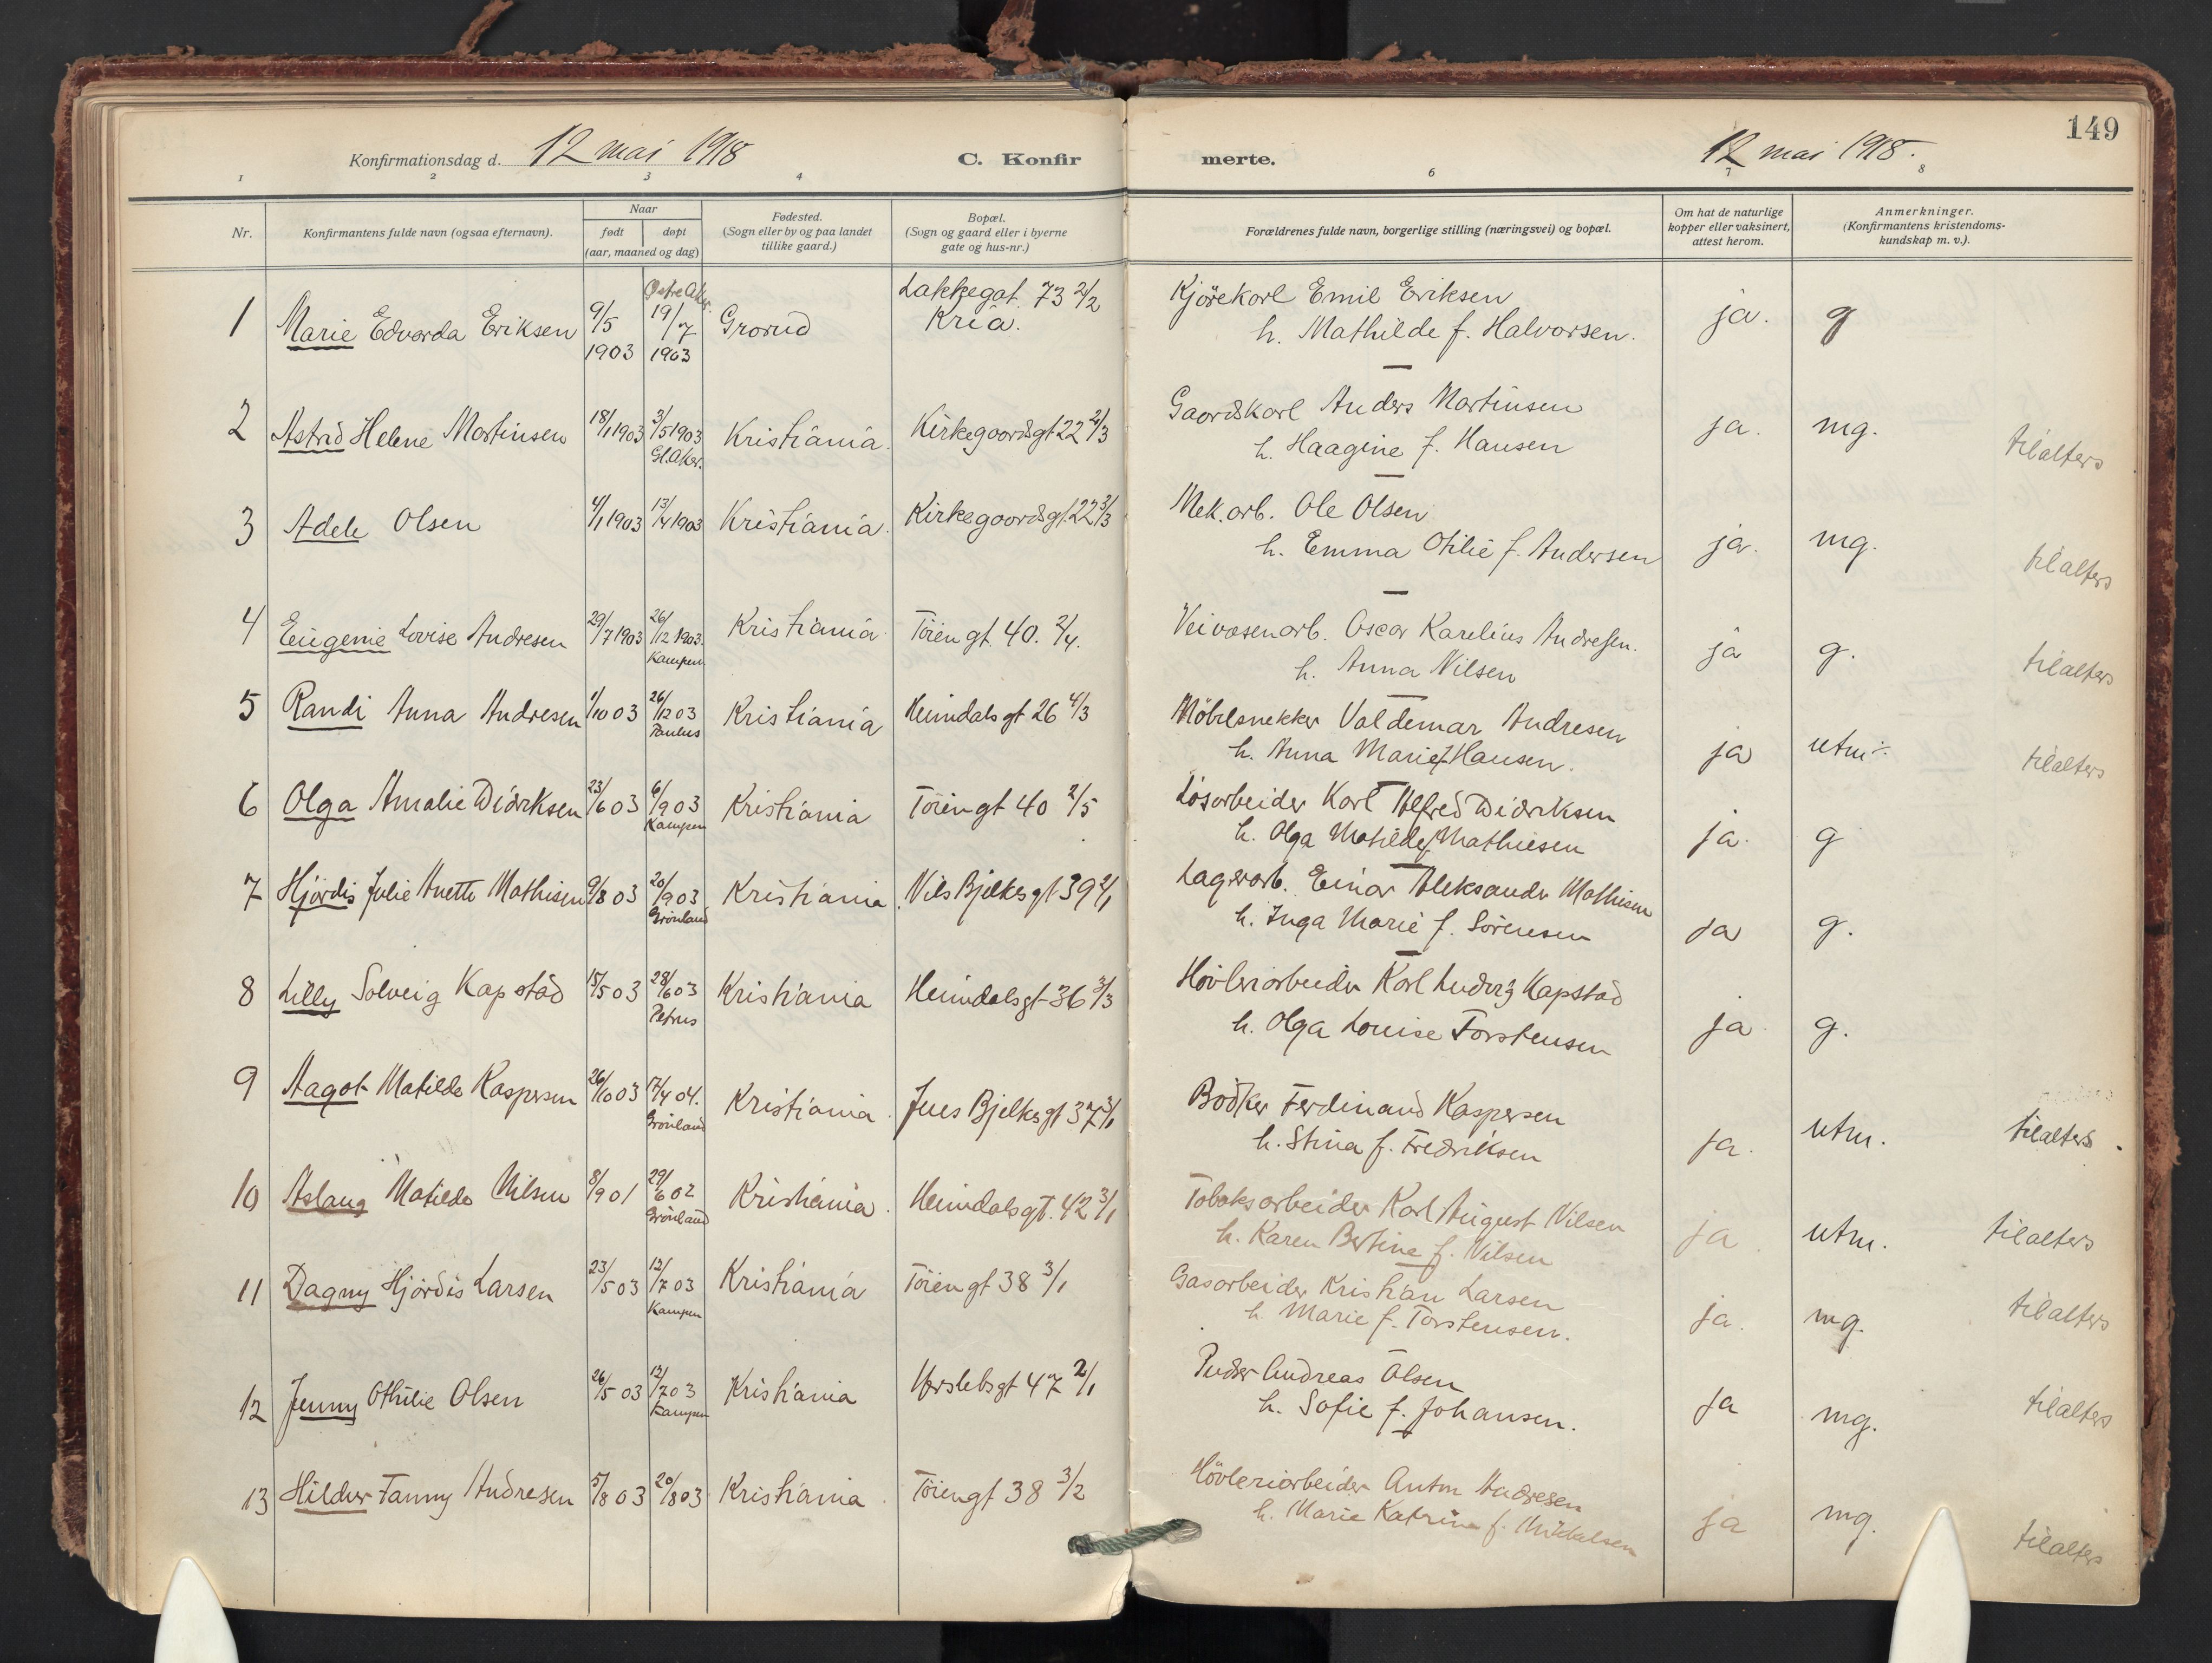 149
Konfirmationsdag d. 12 mai 1918
C. Konfirmerte.
12 mai 1918.
1 2 3 4 6 7 8
Nr.
Konfirmantens fulde navn (ogsaa efternavn).
Naar
født
døpt
(aar, maaned og dag)
Fødested.
(Sogn eller by og paa landet
tillike gaard.)
Bopæl.
(Sogn og gaard eller i byerne
gate og hus-nr.)
Forældrenes fulde navn, borgerlige stilling (næringsvei) og bopæl.
Om hat de naturlige
kopper eller vaksinert,
attest herom.
Anmerkninger.
(Konfirmantens kristendoms-
kundskap m. v.).
1 Marie Edvarda Eriksen 9/5 1903 Østre Aker. 19/7 1903 Grorud Lakkegat. 73 2/2 Kria.
Kjörekarl Emil Eriksen
h. Mathilde f. Halvorsen. ja. g
2 Astrid Helene Martinsen 18/1 1903 3/5 1903 Gl. Aker. Kristiania. Kirkegaardsgt 22 2/3
Gaardskarl Anders Martinsen
h. Haagine f. Hansen ja. mg. tilalters
3 Adele Olsen 4/1 1903 13/4 1903 Kristiania. Kirkegaardsgt. 22 3/3
Mek. arb. Ole Olsen
h. Emma Otilie f. Andersen ja. mg. tilalters
4 Eugenie Lovise Andresen 29/7 1903 26/12 1903. Kampen Kristiania. Töien gt. 40. 2/4.
Veivæsenarb. Oscar Karelius Andresen.
h. Anna Nilsen ja g. tilalters
5 Randi Anna Andresen 1/10 03 26/12 03 Paulus Kristiania Heimdalsgt 26 4/3
Möbelsnekker Valdemar Andresen
h. Anna Marie f. Hansen. ja utm÷ tilalters
6 Olga Amalie Didriksen 23/6 03 6/9 03 Kampen Kristiania Töiengt 40 2/5
Løsarbeider Karl Alfred Didriksen
h. Olga Matilde f. Mathiesen ja. g
7 Hjördis Julie Anette Mathisen 9/8 03 20/9 03 Grönland Kristiania. Nils Bjelkes gt 39 2/1
Lagerarb. Einar Aleksander Mathisen
h. Inga Marie f. Sörensen ja g.
8 Lilly Solveig Kapstad 15/5 03 28/6 03 Petrus Kristiania Heimdalsgt 36 3/3
Hövleriarbeider Karl Ludvig Kapstad
h. Olga Louise Torstensen ja g.
9 Aagot Matilde Kaspersen 26/10 03 17/4 04. Grönland Kristiania. Jens Bjelkes gt 37 3/1
Bödker Ferdinand Kaspersen
h. Stina f. Fredriksen ja. utm. tilalters.
10 Aslaug Matilde Nilsen 8/9 01 29/6 02 Grönland Kristiania. Heimdalsgt. 42 3/1
Tobaksarbeider Karl August Nilsen
h. Karen Bertine f. Nilsen ja utm. tilalters
11 Dagny Hjördis Larsen 23/5 03 12/7 03 Kampen Kristiania Töiengt 38 3/1
Gasarbeider Kristian Larsen
h. Marie f. Torstensen. ja. mg. tilalters
12 Jenny Othilie Olsen 26/5 03 12/7 03 Kampen Kristiania Herslebsgt 47 2/1
Pudser Andreas Olsen
h. Sofie f. Johansen. ja mg. tilalters
13 Hildur Fanny Andresen 5/8 03 20/8 03 Kristiania. Töiengt 38 3/2
Hövleriarbeider Anton Andresen
h. Marie Katrine f. Mikkelsen ja mg. tilalters